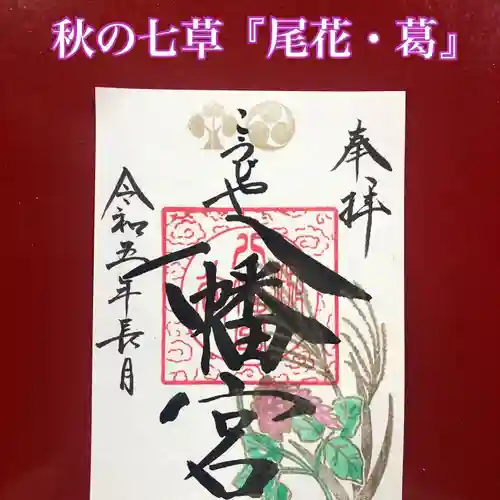 秋の七草『尾花・葛』
奉拝
こうじや
八幡宮
令和五年長月